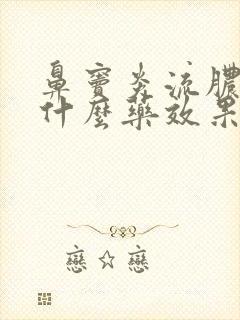 鼻竇炎流膿
什麼藥效果
戀☆戀